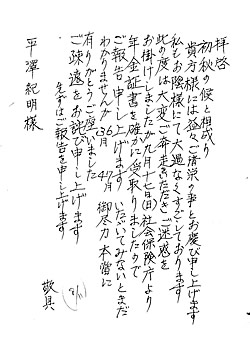 拝啓
初秋の候と相成り
貴方様には益々ご清栄の事とお慶び申し上げます
私もお陰様にて大過なくすごしております
此の度は大変ご奔走いただきご迷惑を
お掛けしましたが九月十七日(日)社会保険庁より
年金証書を確かに受取りましたので
ご報告申し上げます いただいてみないとまだ
わかりませんが36月 47月 御尽力本当に
有りがとうございました
ご疎遠をお詫び申し上げます
先ずはご報告を申し上げます
敬具
平澤紀明様